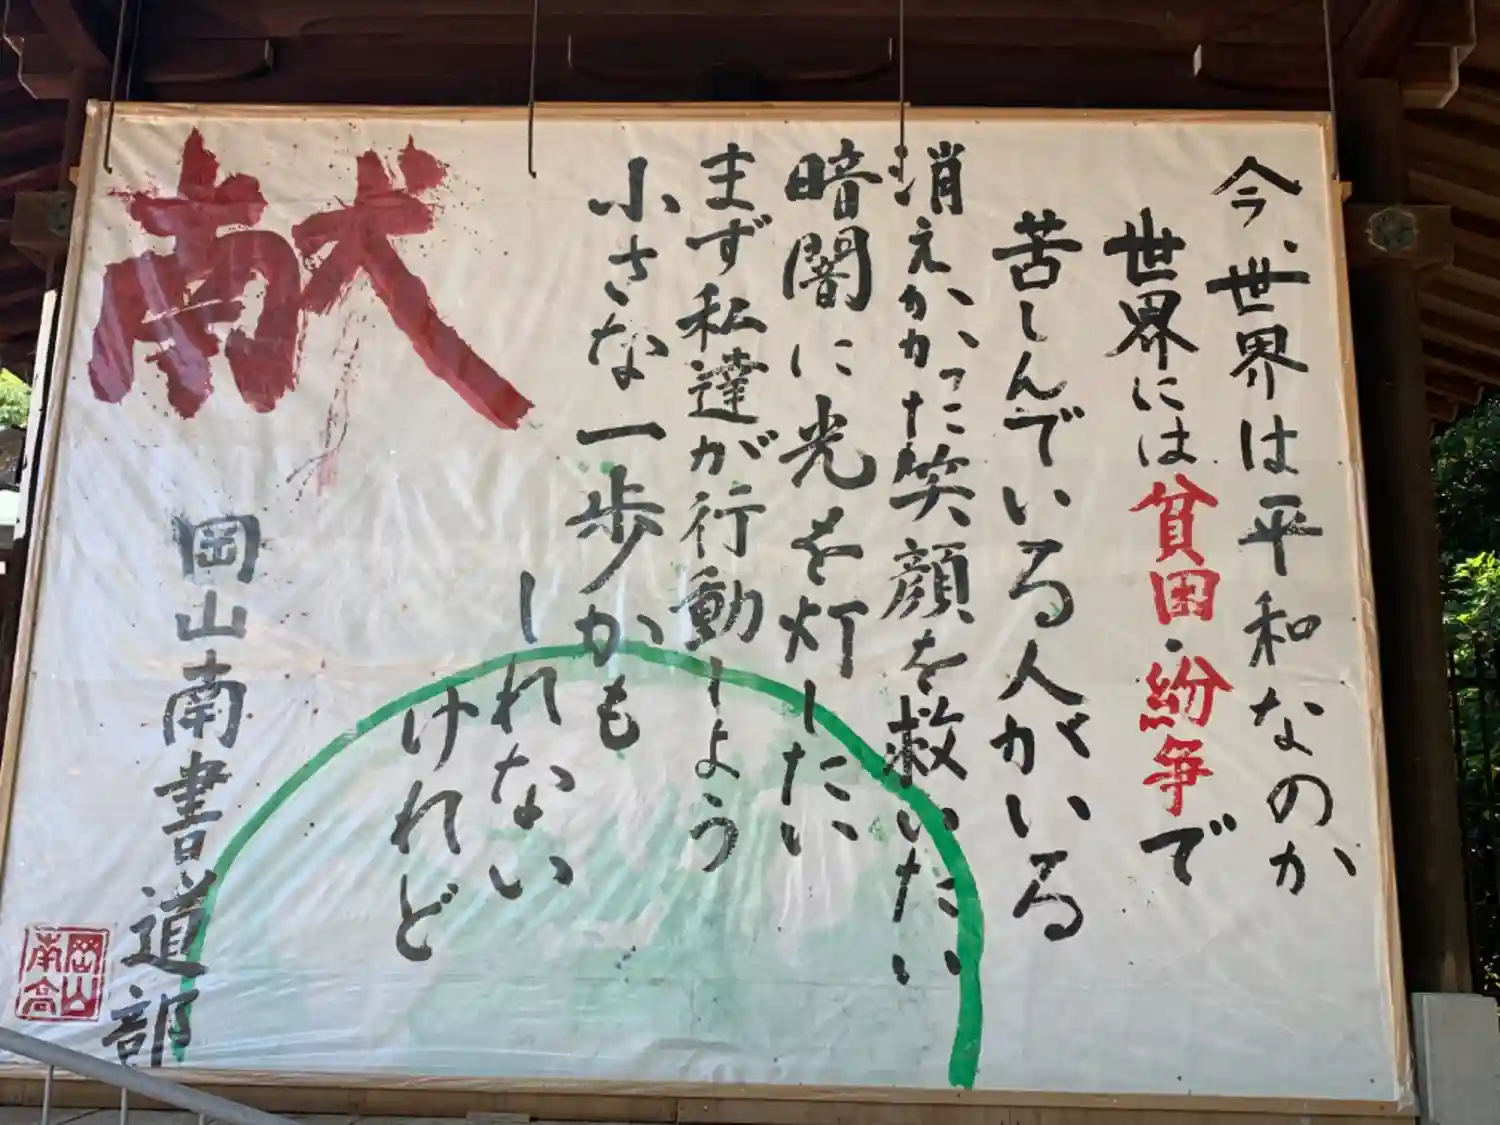 今、世界は平和なのか
世界には貧困・紛争で
苦しんでいる人がいる
消えかかった笑顔を救いたい
暗闇に光を灯したい
まず私達が行動しよう
小さな一歩かも
しれない
けれど
献
岡山南書道部
岡山
南高